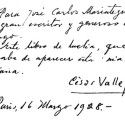 Para José Carlos Mariátegui,
gran escritor y generoso a
migo.
Este libro de lucha, que
aba de aparecer
ana.
César Vallejo
París, 16 Marzo 1928.-